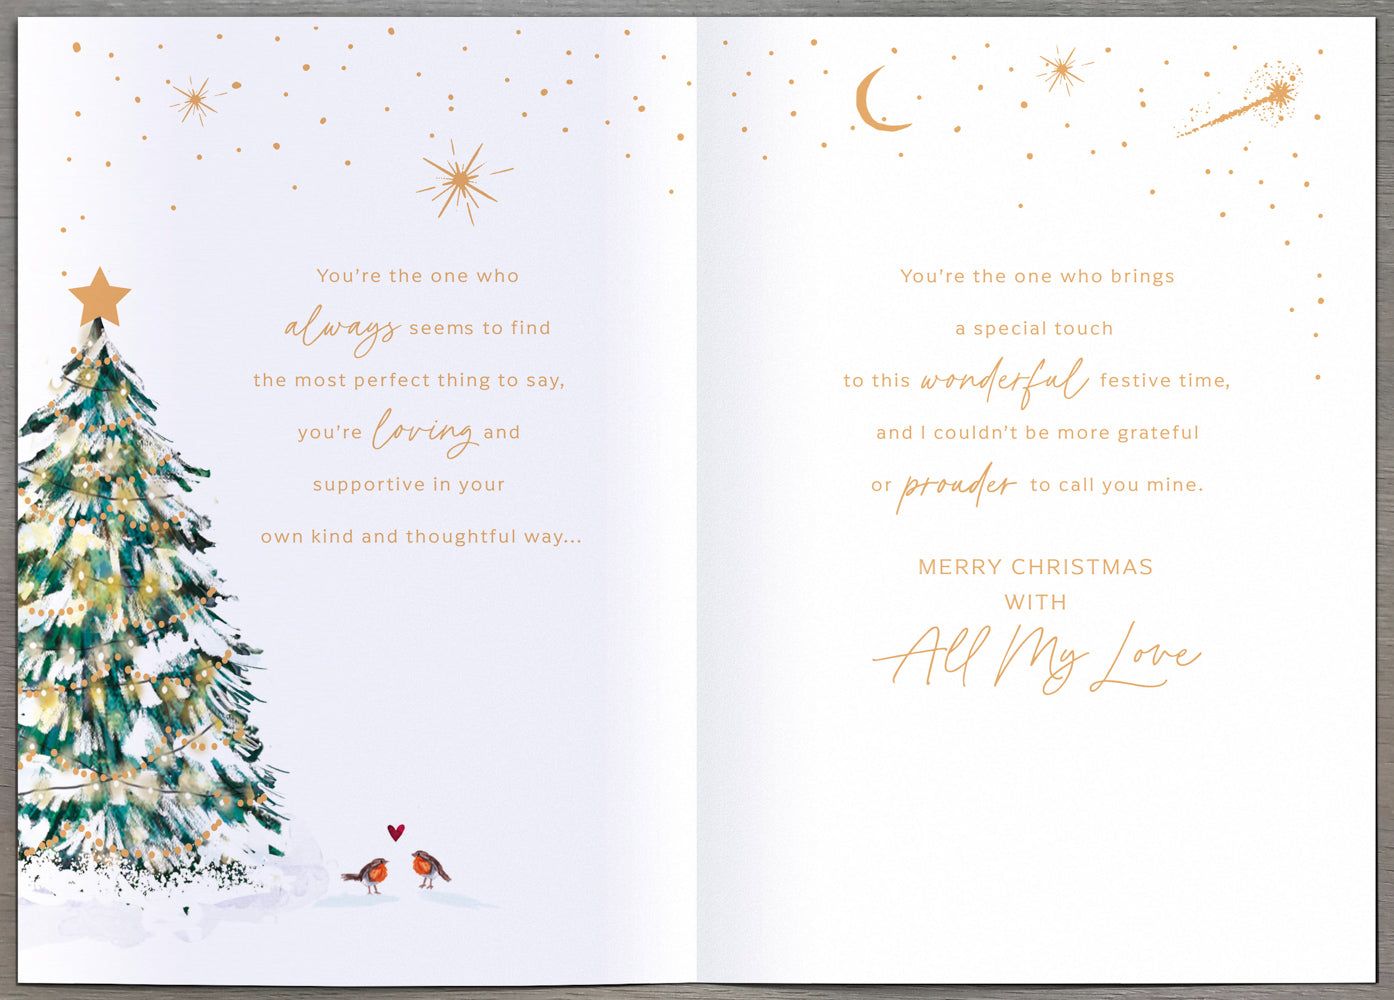 You’re the one who
always seems to find
the most perfect thing to say,
you’re loving and
supportive in your
own kind and thoughtful way...
You’re the one who brings
a special touch
to this wonderful festive time,
and I couldn’t be more grateful
or prouder to call you mine.
MERRY CHRISTMAS
WITH
All My Love